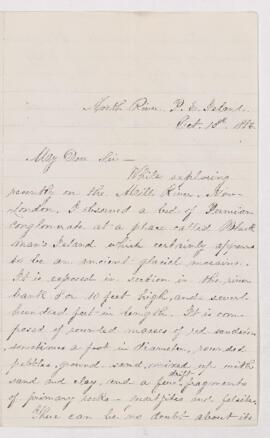 North River, P. E. Island.
Oct. 15th 188
My Dear Sir —
While exploring
recently on the Mill River, New
London, I observed a bed of Permian
conglomate at a place called
man's Island which certainly appears
to be an ancient glacial moraine.
It is exposed in section in the river
bank 8 or 10 feet high, and several
hundred feet in length. It is com-
posed of rounded masses of red sandstone
sometimes a foot in diameter, rounded
pebbles, ground sand, mixed up with
sand and clay, and a few drift fragments
of primary rocks — and felsites.
There can be no doubt about its